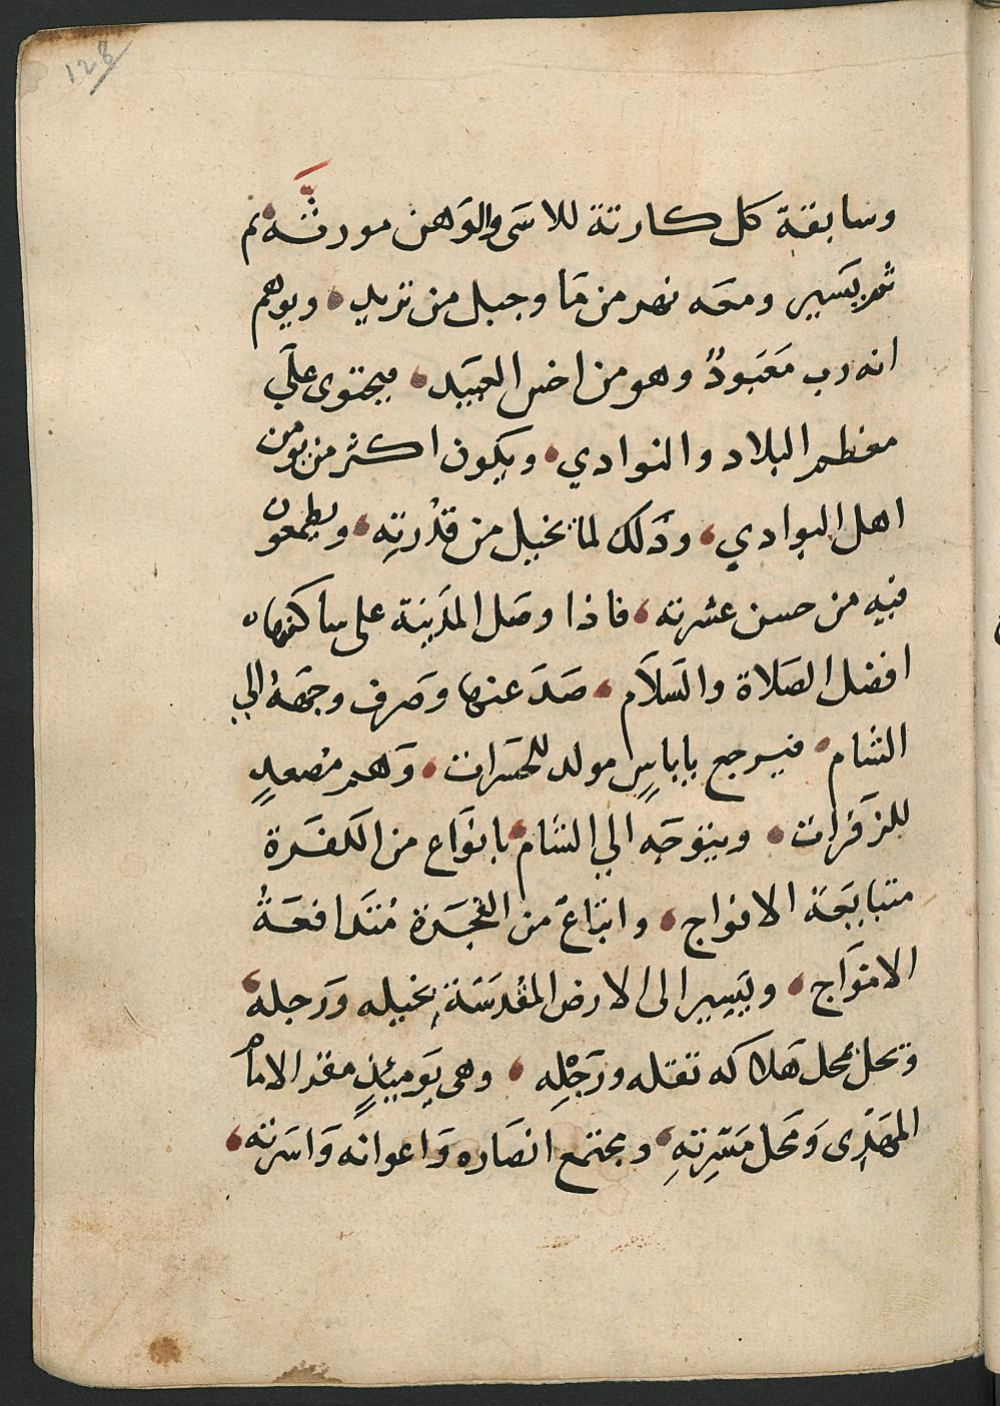 128
وسابقة كل كارثة للاسَى والوَهن مورثَّة ثم
ثم يَسير ومعَه نهر من مَا وجبل من ثريد، ويوهم
انه رب مَعَبودٌ وهو من اخس العبَيد، فيحتوى علَي
معظم البلاد والنوادي، ويكون اكثر من يومن
اهل البوادي، وذَلك لما يخيل من قدْرتِه، ويطمعون
فيه من حسن عشرته، فاذا وصَل المدَينة على ساكنها،
افضل الصَلاة والسَلاَم، صَدَ عنها وَصَرف وجهَهُ الي
الشام، فيرجع باباسٍ مولد للحسَرات، وَهم مصْعدٍ
للزَفرَات، ويتوجَه الي الشام بانوَاع من الكفَرة
متبايعَة الافواج، واتباَعَ من الفجَرَة مُتدَافعَةُ
الامَوَاج، ويَسير الى الارض المقْدسَة بخيله وَرَجله،
وتحل بمحل هَلاكه ثقله ورَجْلِه، وهى يَوميئذٍ مقر الامام
المهَدْى وَمحَل مَسّرِتهِ، ومجتمع انصَاره وَاعوانه وَاسَرته،